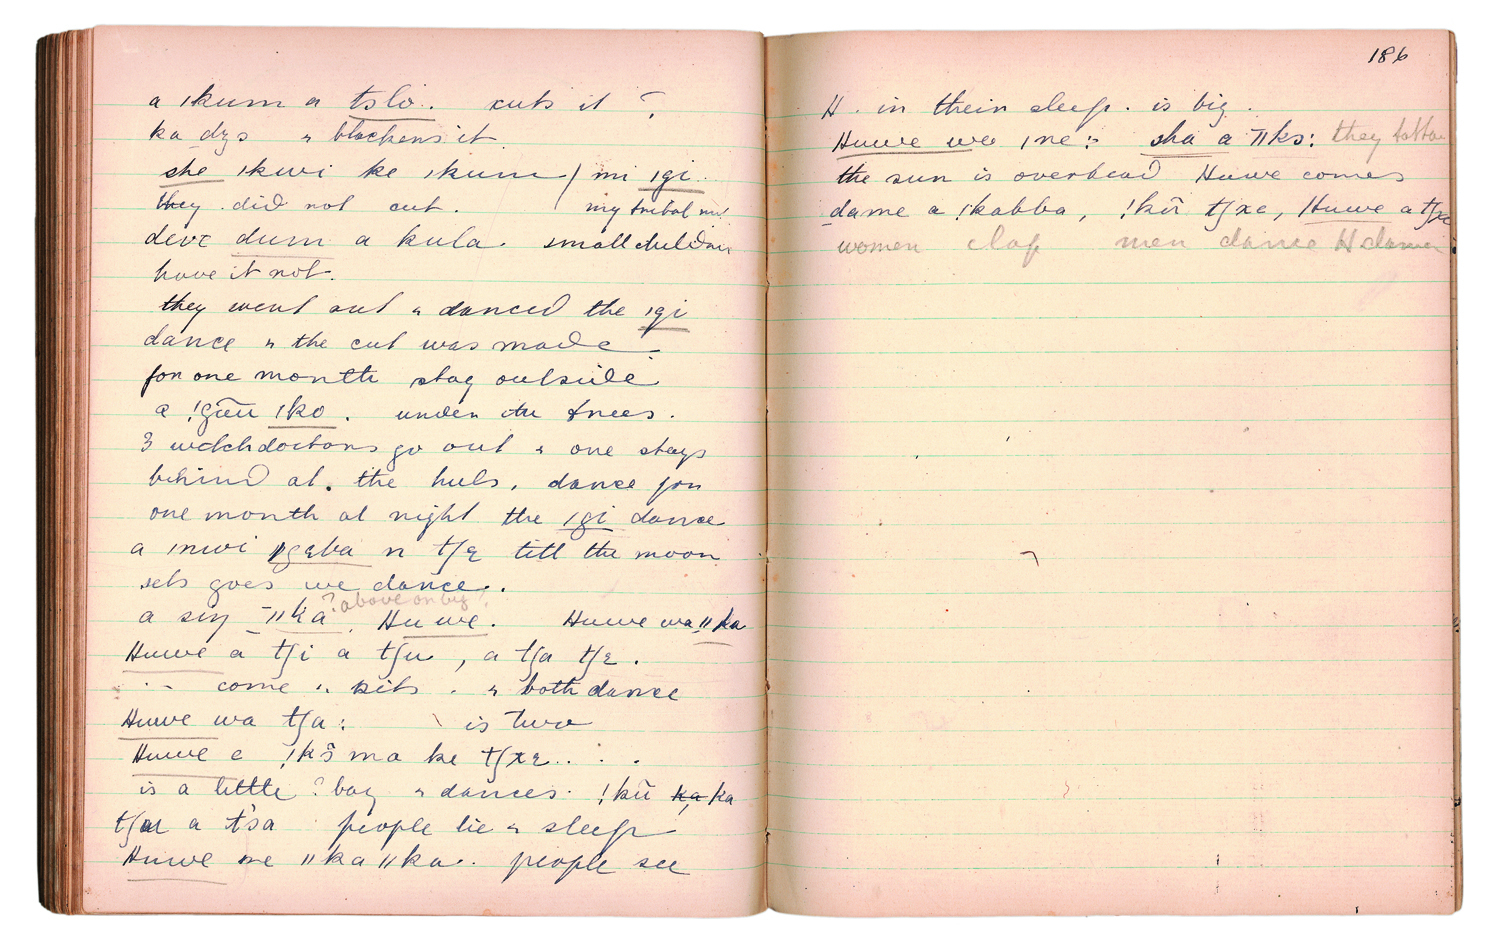 a ǀkum a tslo. cuts it ?
ka dzs & blackens it
she ǀkwi ke ǀkum / mi ǀgi..
they did not cut. my tribal
deve dum a kula. small children
have it not.
they went out & danced the ǀgi
dance & the cut was made.
for one month stay outside
a !gãu ǀko. under the trees.
3 witchdoctors go out & one stays
behind at. the huts, dance for
one month at night the ǀgi dance
a ǀnwi n tʃɛ till the moon
sets goes we dance..
? above or big ?
a siŋ ǁka. Huwe. Huwe wa ǁka
Huwe a tʃi a tʃu, a tʃa tʃɛ.
come & sits. & both dance
Huwe wa tʃa: is two
Huwe e !kõ ma ke tʃxɛ....
is a little ? boy & dances. !kũ ka ka
tʃu a t'sa people lie & sleep
Huwe me ǁka ǁka.. people see
186
H. in their sleep. is big.
Huwe wa ǀne: sha a ǁks: they tattoo
the sun is overhead Huwe comes
dame a !kabba, !kũ tʃxe, Huwe a tʃxe
women clap men dance H dances